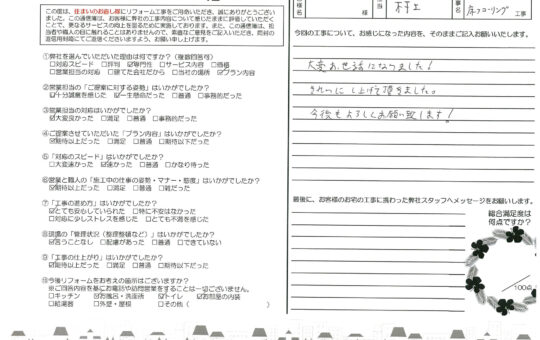 この度は、住まいのお直し隊にリフォーム工事をご用命いただき、誠にありがとうござい
ました。この通信簿は、お客様に弊社の工事内容について感じたままに評価していただく
ことで、更なるサービスの向上を図るために実施しております。また、この通信簿は、担
当者や職人の目に触れることはありませんので、素直なご意見をご記入いただき、同封の
返信用封筒にてご返信くださいますよう、お願い申し上げます。
①弊社を選んでいただいた理由は何ですか?(複数回答可)
□対応スピード □評判 ☑専門性 □サービス内容 □価格
□営業担当の対応 □建てた会社だから □当社の場所 ☑プラン内容
②営業担当の「ご提案に対する姿勢」はいかがでしたか?
☑十分誠意を感じた ☑一生懸命だった □普通 □事務的だった
③営業担当の対応はいかがでしたか?
☑大変良かった □満足 □普通 □事務的だった
④ご提案させていただいた「プラン内容」はいかがでしたか?
☑期待以上だった □満足 □普通 □期待以下だった
⑤「対応のスピード」はいかがでしたか?
□大変速かった ☑速かった □普通 □かなり待った
⑥営業と職人の「施工中の仕事の姿勢・マナー・態度」はいかがでしたか?
☑期待以上だった □満足 □普通 □雑だった
⑦「工事の進め方」はいかがでしたか?
☑とても安心していられた □特に不安はなかった
□対応に少しストレスを感じた □とても不満を感じた
⑧現場の「管理状況(整理整頓など)」はいかがでしたか?
☑言うことなし □配慮があった □普通 □できていない
⑨「工事の仕上がり」はいかがでしたか?
☑期待以上だった □満足 □普通 □期待以下だった
⑩今後リフォームをお考えの箇所はございますか?
※ご回答内容を基にお電話や訪問営業をすることは一切ございません。
□キッチン ☑お風呂・洗面所 ☑トイレ ☑お部屋の内装
□給湯器 □外壁・屋根 □その他( )
様
担当
村上
工事名
床フローリング 工事
今回の工事について、お感じになった内容を、そのままご記入お願いします。
大変お世話になりました!
きれいに仕上げて頂きました。
今後もよろしくお願い致します!
最後に、お客様のお宅の工事に携わった弊社スタッフへメッセージをお願いします。
総合満足度は
何点ですか?
/100点